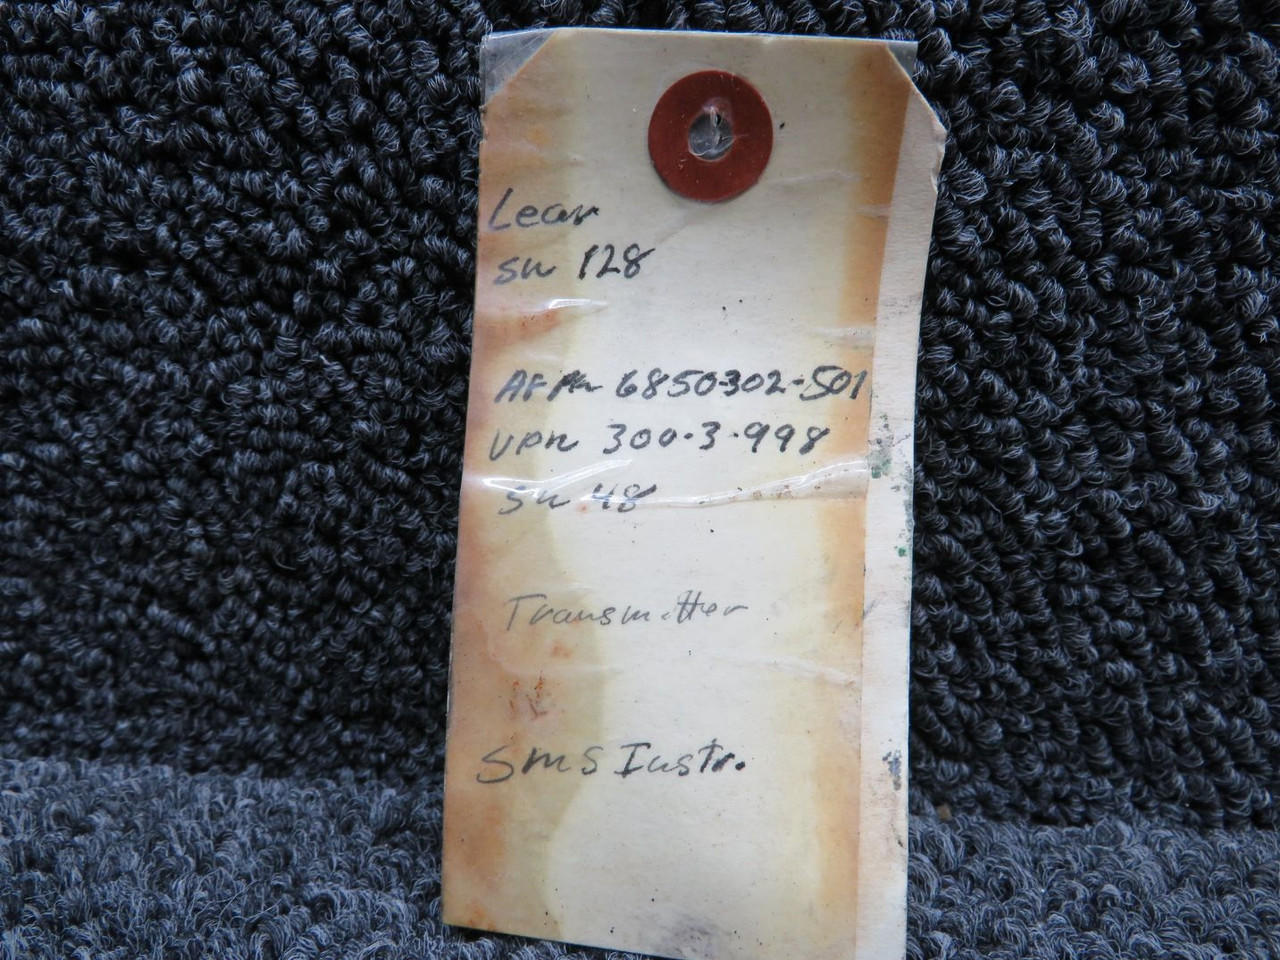 Lear
SN 128
AF PN 6850302-501
VPN 300-3-998
SN 48
Transmitter
SMS Instr.